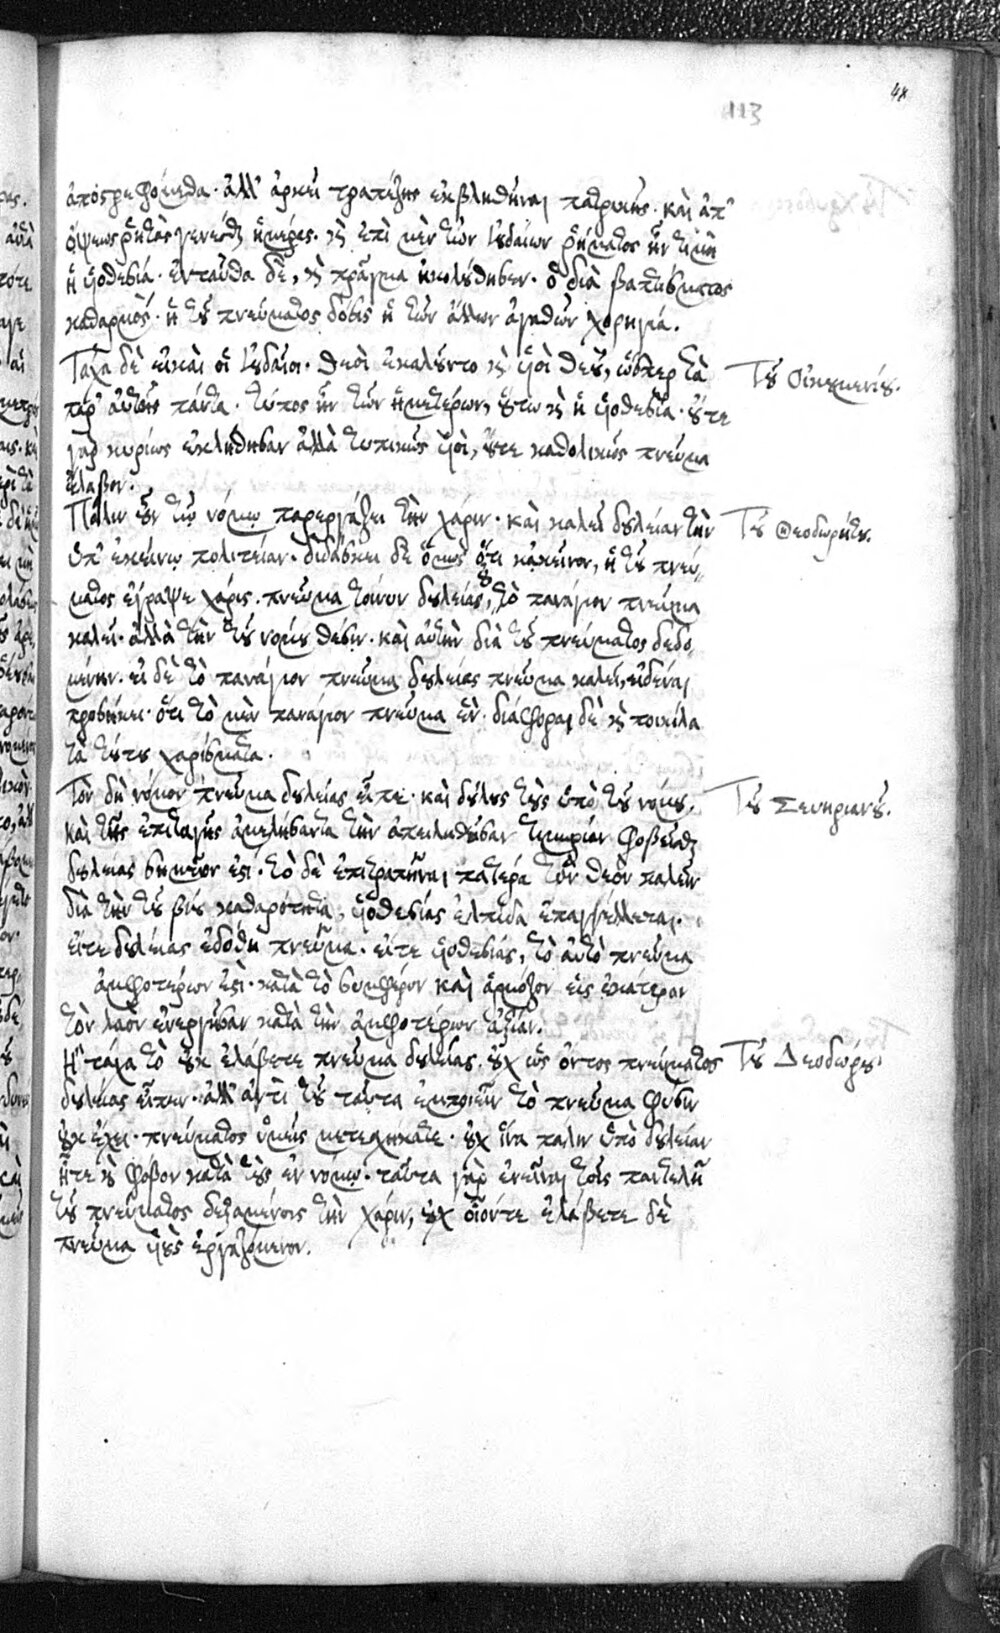 48
113
ἀποστρεφόμεθα· ἀλλ' ἀρκεῖ τραπέζης ἐκβληθῆναι πατρικῆς· καὶ ἀπ'
ὄψεως ῥητὰς γενέσθαι ἡμέρας. καὶ ἐπὶ μὲν τῶν ἰουδαίων ῥήματος ἦν τιμὴ
ἡ υἱοθεσία· ἐνταῦθα δὲ, καὶ πρᾶγμα ἠκολούθησεν· ὁ διὰ βαπτίσματος
καθαρμὸς· ἡ τοῦ πνεύματος δόσις ἡ τῶν ἄλλων ἀγαθῶν χορηγία.
Τάχα δὲ εἰ καὶ οἱ ἰουδαῖοι· θεοὶ ἐκαλοῦντο καὶ υἱοὶ θεοῦ, ὥσπερ τὰ
παρ' αὐτοῖς πάντα· τύπος ἦν τῶν ἡμετέρων, οὕτω καὶ ἡ υἱοθεσία· οὔτε
γὰρ κυρίως ἐκλήθησαν ἀλλὰ τυπικῶς υἱοὶ, οὔτε καθολικῶς πνεῦμα
ἔλαβον.
Τοῦ Οἰκουμενίου.
Πάλιν ἐν τῷ νόμῳ παρεργάζει τὴν χάριν· καὶ καλεῖ δουλείαν τὴν
ὑπ' ἐκείνῳ πολιτείαν· διδάσκει δὲ ὅμως ὅτι κἀκεῖνον, ἡ τοῦ πνεύ-
ματος ἔγραψε χάρις. πνεῦμα τοίνυν δουλείας, οὐ τὸ παναγιον πνεῦμα
καλεῖ· ἀλλὰ τὴν τοῦ νόμου θέσιν· καὶ αὐτὴν διὰ τοῦ πνεύματος δεδο-
μένην. εἰ δὲ τὸ πανάγιον πνεῦμα δουλείας πνεῦμα καλεῖ, εἰδέναι
προσήκει· ὅτι τὸ μὲν πανάγιον πνεῦμα ἓν· διάφοραι δὲ καὶ ποικίλα
τὰ τούτου χαρίσματα.
Τοῦ Θεοδωρήτου.
Τὸν δὴ νόμον πνεῦμα δουλείας εἶπε· καὶ δούλους τοὺς ὑπὸ τοῦ νόμου.
καὶ τῆς ἐπιταγῆς ἀμελήσαντα τὴν ἀπειληθεῖσαν τιμωρίαν φοβεῖσθαι
δουλείας σημεῖον ἐστι· τὸ δὲ ἐπιτραπῆναι πατέρα τὸν θεὸν καλεῖν
διὰ τὴν τοῦ βίου καθαρότητα, υἱοθεσίας ἐλπίδα ἐπαγγέλλεται.
εἴτε δουλείας ἐδόθη πνεῦμα· εἴτε υἱοθεσίας, τὸ αὐτὸ πνεῦμα
ἀμφοτέρων ἐστὶ· κατὰ τὸ συμφέρον καὶ ἁρμόζον εἰς ἑκάτερον
τὸν λαὸν ἐνεργῆσαν κατὰ τὴν ἀμφοτέρων ἀξίαν.
Τοῦ Σευηριανοῦ.
Ἢ τάχα τὸ οὐκ ἐλάβετε πνεῦμα δουλείας. οὐχ ὡς ὄντος πνεύματος
δουλείας εἶπεν· ἀλλ' ἀντὶ τοῦ ταῦτα ἐμποιεῖν τὸ πνεῦμα φύσιν
οὐκ ἔχει· πνεύματος ὑμεῖς μετειλήχατε· οὐχ ἵνα πάλιν ὑπὸ δουλείαν
ἦτε καὶ φόβον κατὰ τοὺς ἐν νόμῳ· ταῦτα γὰρ ἐνεῖναι τοῖς παντελῆ
τοῦ πνεύματος δεξαμένοις τὴν χάριν, οὐχ οἷόντε ἐλάβετε δὲ
πνεῦμα υἱοὺς ἐργαζόμενον.
Τοῦ Διοδώρου.